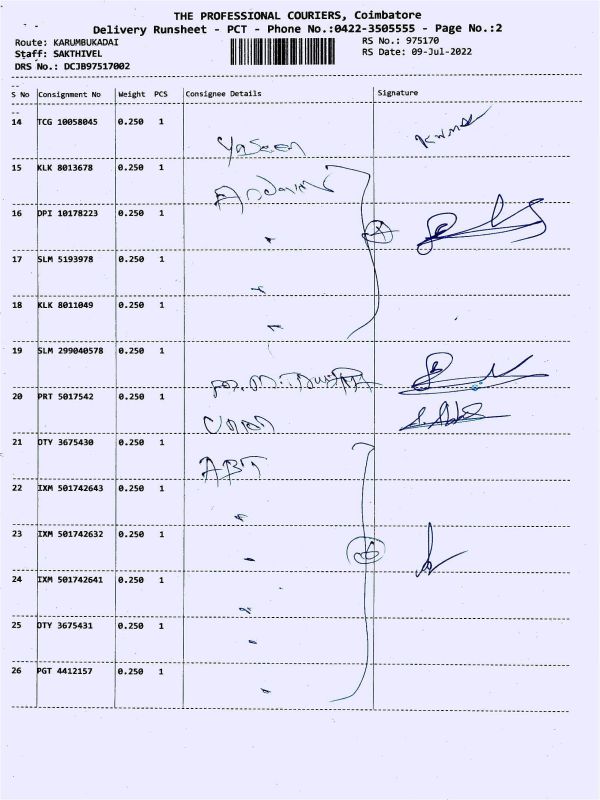 THE PROFESSIONAL COURIERS, Coimbatore
Delivery Runsheet - PCT - Phone No.:0422-3505555 - Page No.:2
Route: KARUMBUKADAI
RS No.: 975170
Staff: SAKTHIVEL
RS Date: 09-Jul-2022
DRS No.: DCJB97517002
S No Consignment No Weight PCS Consignee Details Signature
14 TCG 10058045 0.250 1
Yaseen
15 KLK 8013678 0.250 1
16 DPI 10178223 0.250 1
17 SLM 5193978 0.250 1
18 KLK 8011049 0.250 1
19 SLM 299040578 0.250 1
20 PRT 5017542 0.250 1
21 DTY 3675430 0.250 1
ABT
22 IXM 501742643 0.250 1
23 IXM 501742632 0.250 1
24 IXM 501742641 0.250 1
25 DTY 3675431 0.250 1
26 PGT 4412157 0.250 1